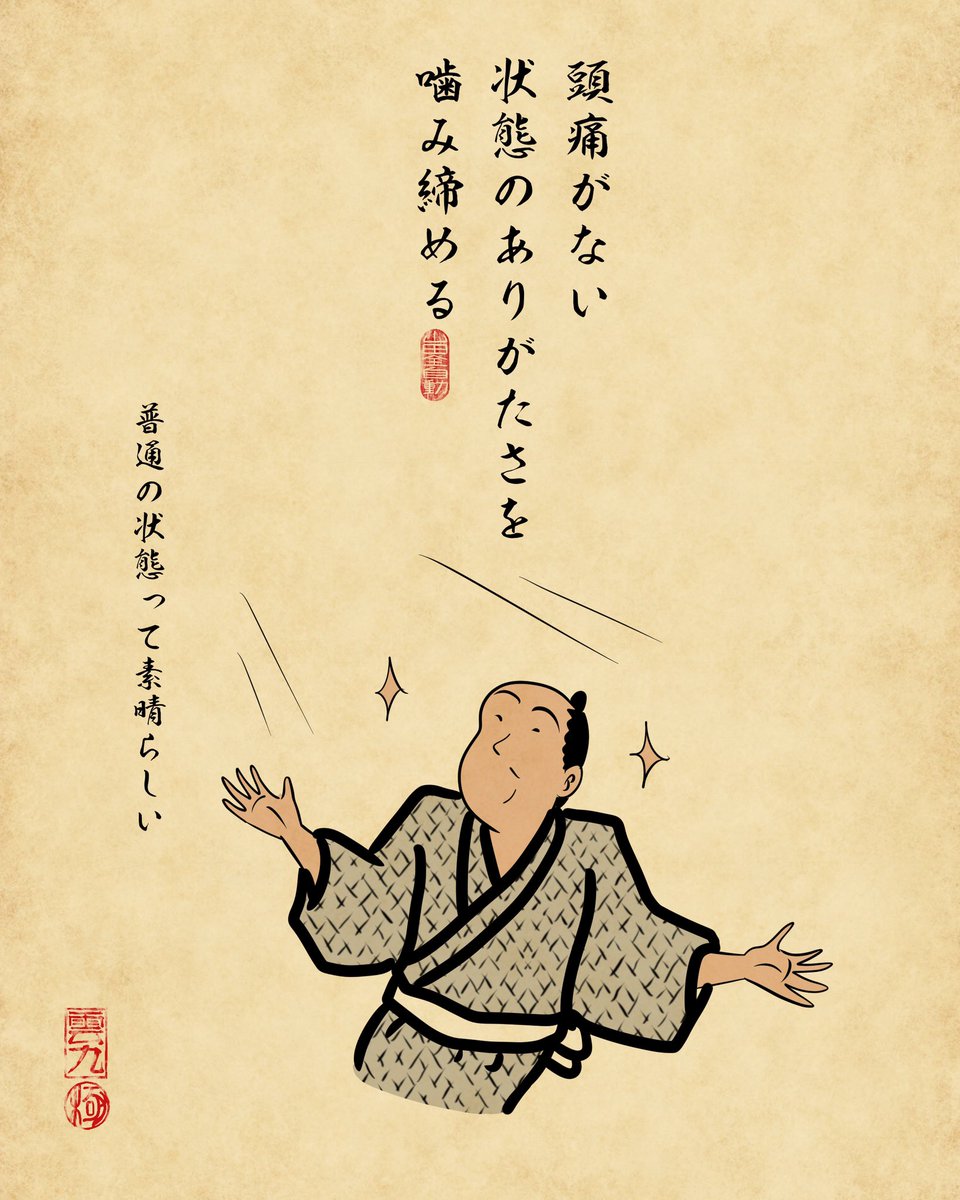 頭痛がない
状態のありがたさを
噛み締める
普通の状態って素晴らしい